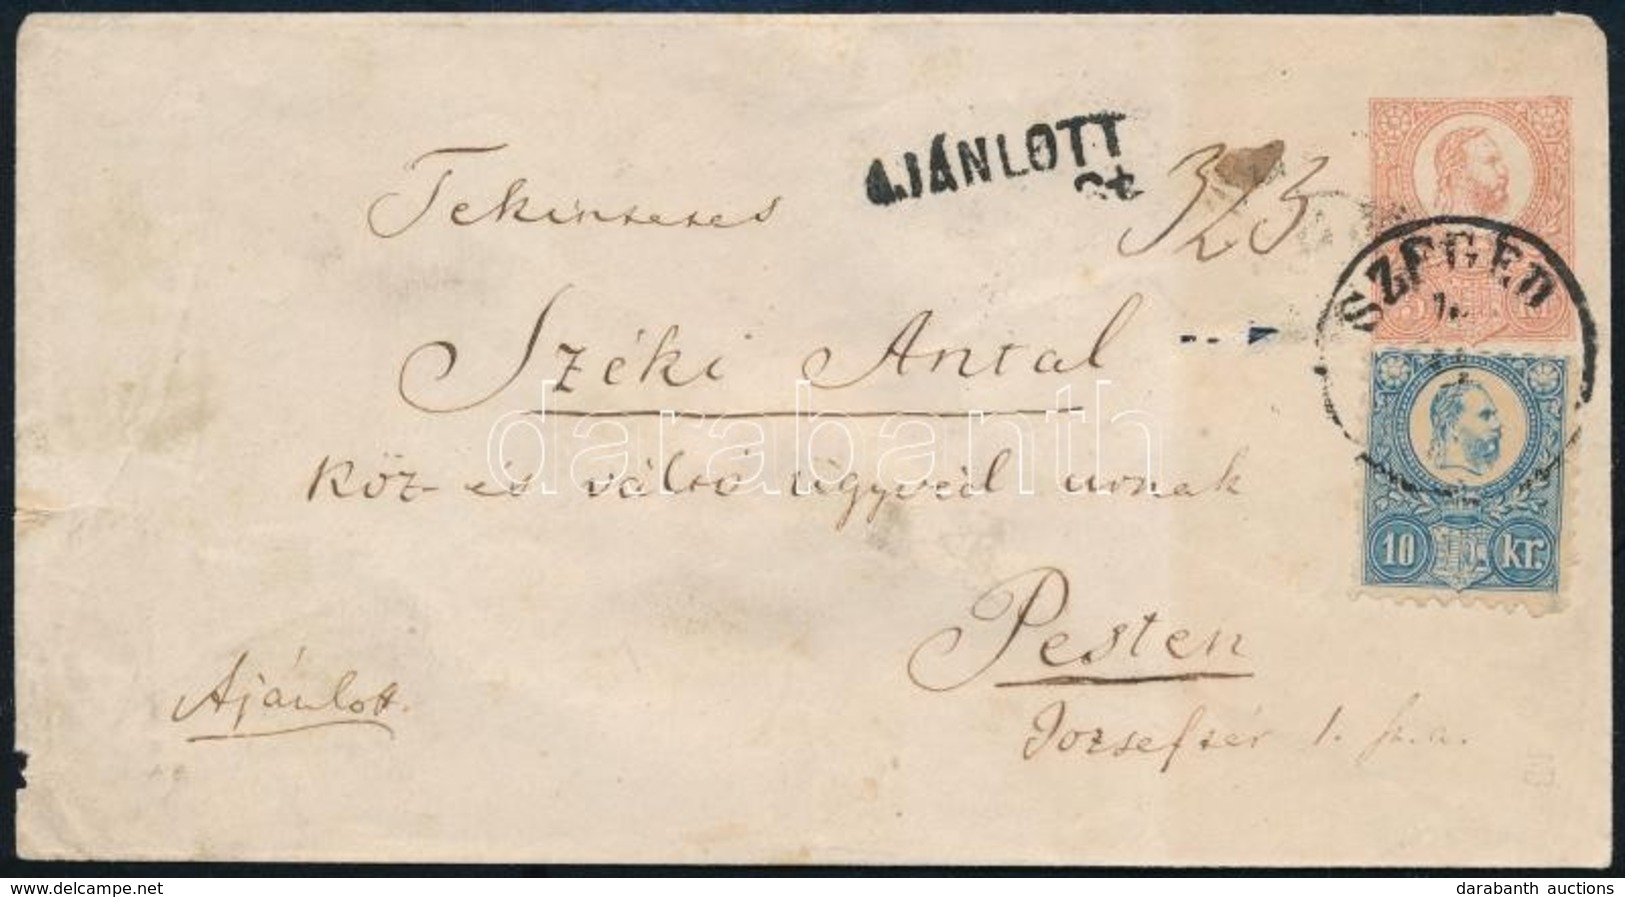 AJÁNLOTT
Tekintetes
323
SZEGED
Széki Antal
darabanth
köz- és váltó ügyvéd urnak
10 kr.
Pesten
Ajánlott.
Józseftér 1. sz. a.
© delcampe.net
darabanth auctions